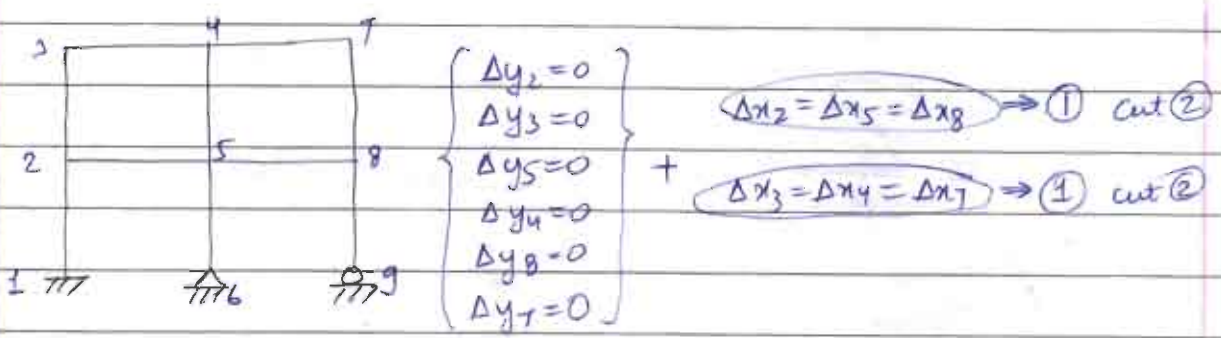 3 4 7
2 5 8
1 6 9
Δy₂ = 0
Δy₃ = 0
Δy₅ = 0
Δy₄ = 0
Δy₈ = 0
Δy₇ = 0
+
Δx₂ = Δx₅ = Δx₈ ⇒ ① cut ②
Δx₃ = Δx₄ = Δx₇ ⇒ ① cut ②